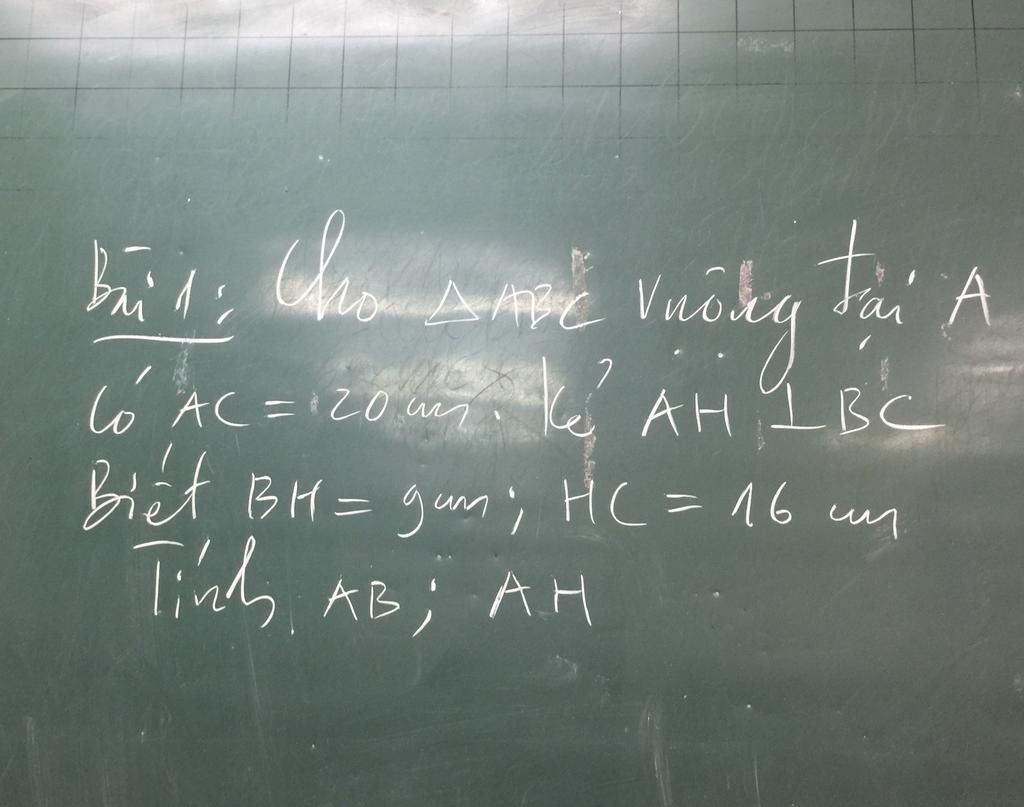 Bài 1: Cho △ABC vuông tại A
Có AC = 20 cm. kẻ AH ⊥ BC
Biết BH = 9cm; HC = 16 cm
Tính AB; AH